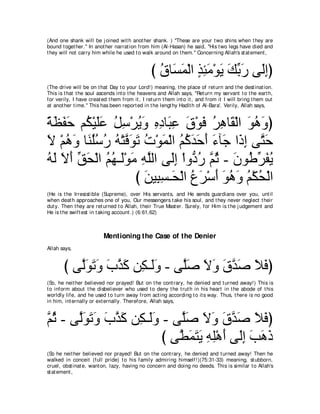 (And one shank will be joined with another shank. ) "These are your two shins when they are
bound together.'' In another narration from him (Al-Hasan) he said, "His two legs have died and
they will not carry him while he used to walk around on them.'' Concerning Allah's statement,
(إِلَى رَبِّكَ يَوْمَئِذٍ الْمَسَاقُ )
(The drive will be on that Day to your Lord!) meaning, the place of return and the destination.
This is that the soul ascends into the heavens and Allah says, "Return my servant to the earth,
for verily, I have created them from it. I return them into it, and from it I will bring them out
at another time.'' This has been reported in the lengthy Hadith of Al-Bara'. Verily, Allah says,
(وَهُوَ الْقَاهِرُ فَوْقَ عِبَادِهِ وَيُرْسِلُ عَلَيْكُم حَفَظَةً
حَتَّى إِذَا جَآءَ أَحَدَكُمُ الْمَوْتُ تَوَفَّتْهُ رُسُلُنَا وَهُمْ لاَ
يُفَرِّطُونَ - ثُمَّ رُدُّواْ إِلَى اللَّهِ مَوْلَـهُمُ الْحَقِّ أَلاَ لَهُ
الْحُكْمُ وَهُوَ أَسْرَعُ الْحَـسِبِينَ )
(He is the Irresistible (Supreme), over His servants, and He sends guardians over you, until
when death approaches one of you. Our messengers take his soul, and they never neglect their
duty. Then they are returned to Allah, their True Master. Surely, for Him is the judgement and
He is the swiftest in taking account.) (6:61,62)
Mentioning the Case of the Denier
Allah says,
(فَلاَ صَدَّقَ وَلاَ صَلَّى - وَلَـكِن كَذَّبَ وَتَوَلَّى )
(So, he neither believed nor prayed! But on the contrary, he denied and turned away!) This is
to inform about the disbeliever who used to deny the truth in his heart in the abode of this
worldly life, and he used to turn away from acting according to its way. Thus, there is no good
in him, internally or externally. Therefore, Allah says,
(فَلاَ صَدَّقَ وَلاَ صَلَّى - وَلَـكِن كَذَّبَ وَتَوَلَّى - ثُمَّ
ذَهَبَ إِلَى أَهْلِهِ يَتَمَطَّى )
(So he neither believed nor prayed! But on the contrary, he denied and turned away! Then he
walked in conceit (full pride) to his family admiring himself!)(75:31-33) meaning, stubborn,
cruel, obstinate, wanton, lazy, having no concern and doing no deeds. This is similar to Allah's
statement,